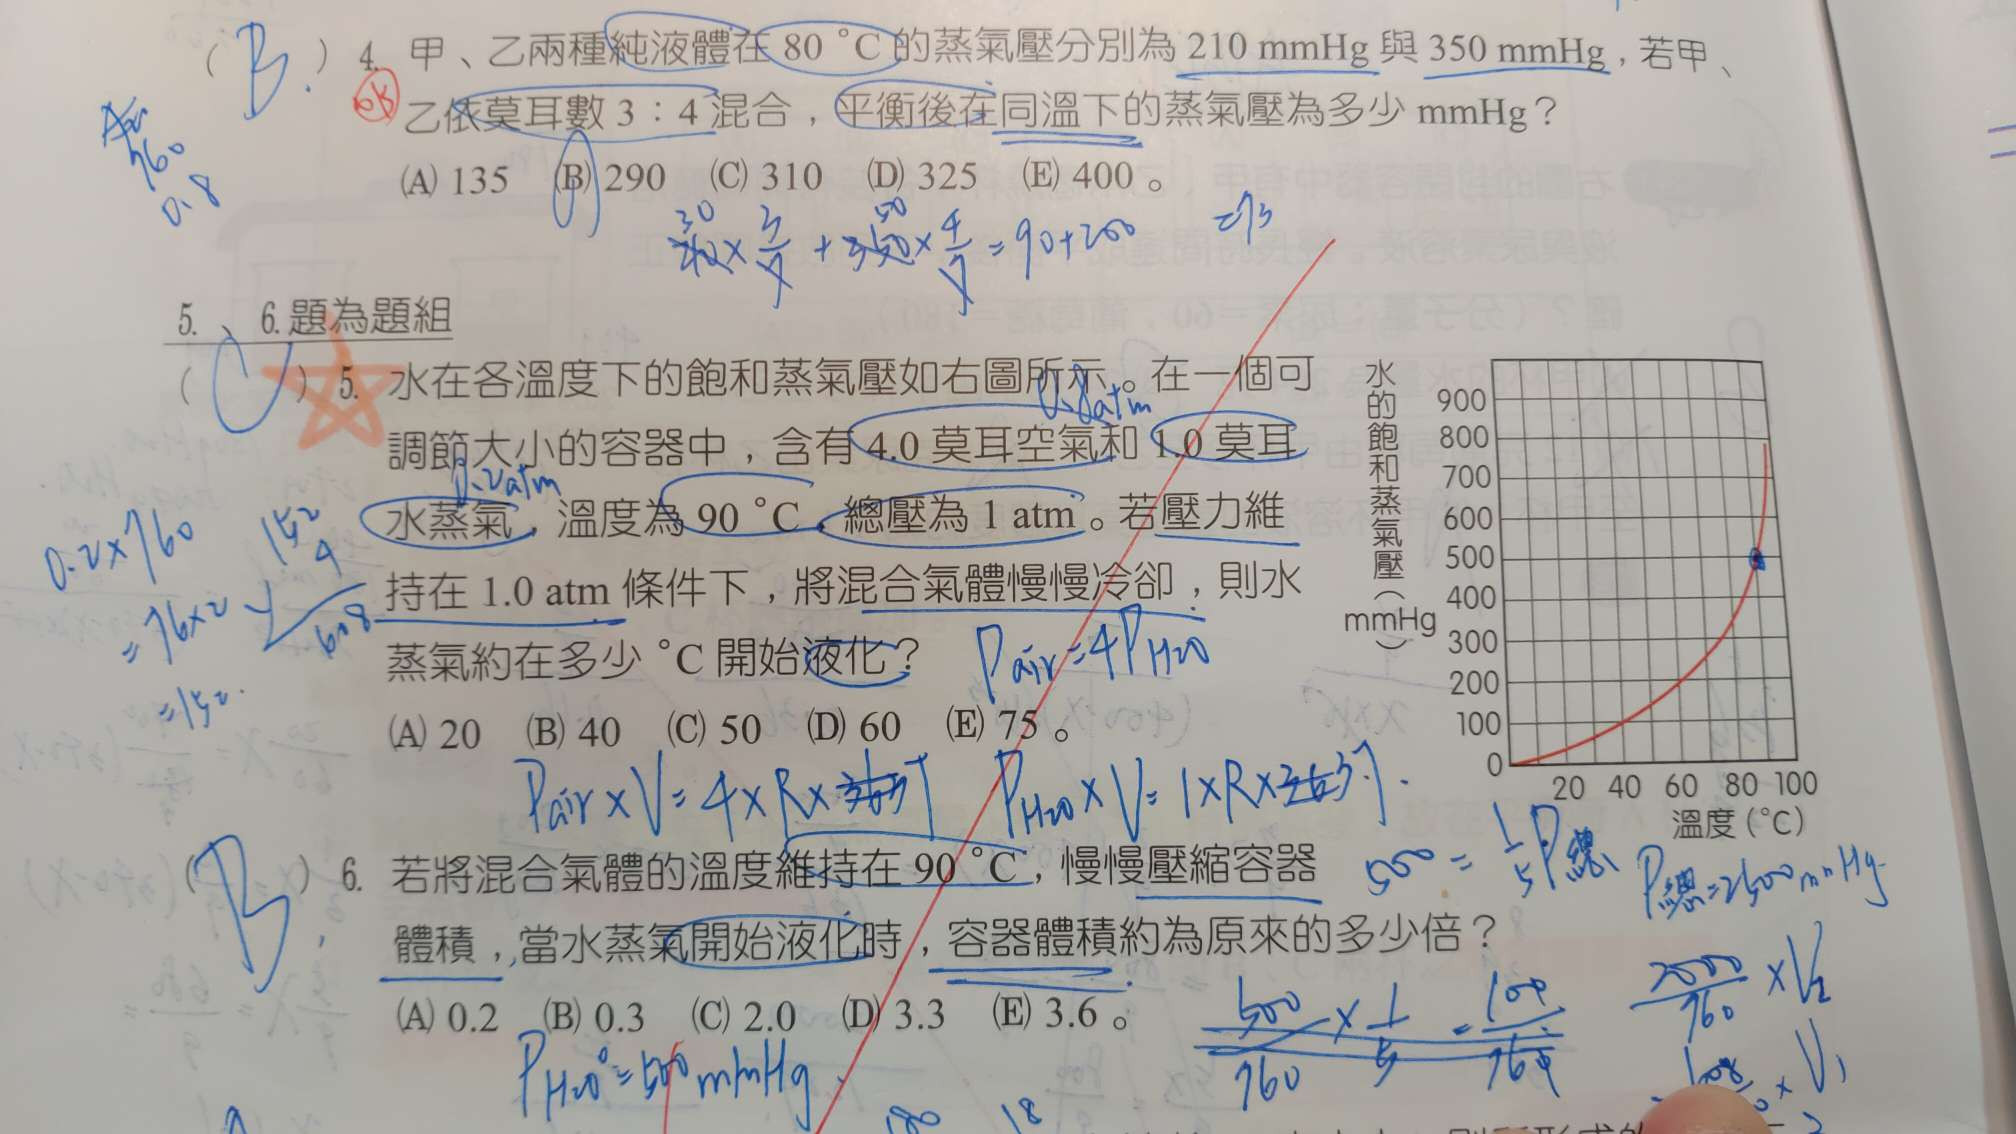 ( B. ) 4. 甲、乙兩種純液體在 80 °C 的蒸氣壓分別為 210 mmHg 與 350 mmHg，若甲、
OK 乙依莫耳數 3：4 混合，平衡後在同溫下的蒸氣壓為多少 mmHg？
760
0.8
(A) 135 (B) 290 (C) 310 (D) 325 (E) 400。
30 50
× 3/7 + 350 × 4/7 = 90+200
5.、6.題為題組
( C ) 5. 水在各溫度下的飽和蒸氣壓如右圖所示。在一個可
0.8atm
調節大小的容器中，含有 4.0 莫耳空氣和 1.0 莫耳
0.2atm
水蒸氣，溫度為 90 °C，總壓為 1 atm。若壓力維
持在 1.0 atm 條件下，將混合氣體慢慢冷卻，則水
蒸氣約在多少 °C 開始液化？
Pair=4PH2O
(A) 20 (B) 40 (C) 50 (D) 60 (E) 75。
0.2×760
=76×2
=152.
152
4
608
Pair×V=4×R×T PH2O×V=1×R×T.
水的飽和蒸氣壓(mmHg)
900
800
700
600
500
400
300
200
100
0
20 40 60 80 100
溫度(°C)
( B ) 6. 若將混合氣體的溫度維持在 90 °C，慢慢壓縮容器
體積，當水蒸氣開始液化時，容器體積約為原來的多少倍？
(A) 0.2 (B) 0.3 (C) 2.0 (D) 3.3 (E) 3.6。
500=1/5P總 P總=2500mmHg
500/760×1/5=100/760
/760×V2
×V1
PH2O°=500mmHg
18